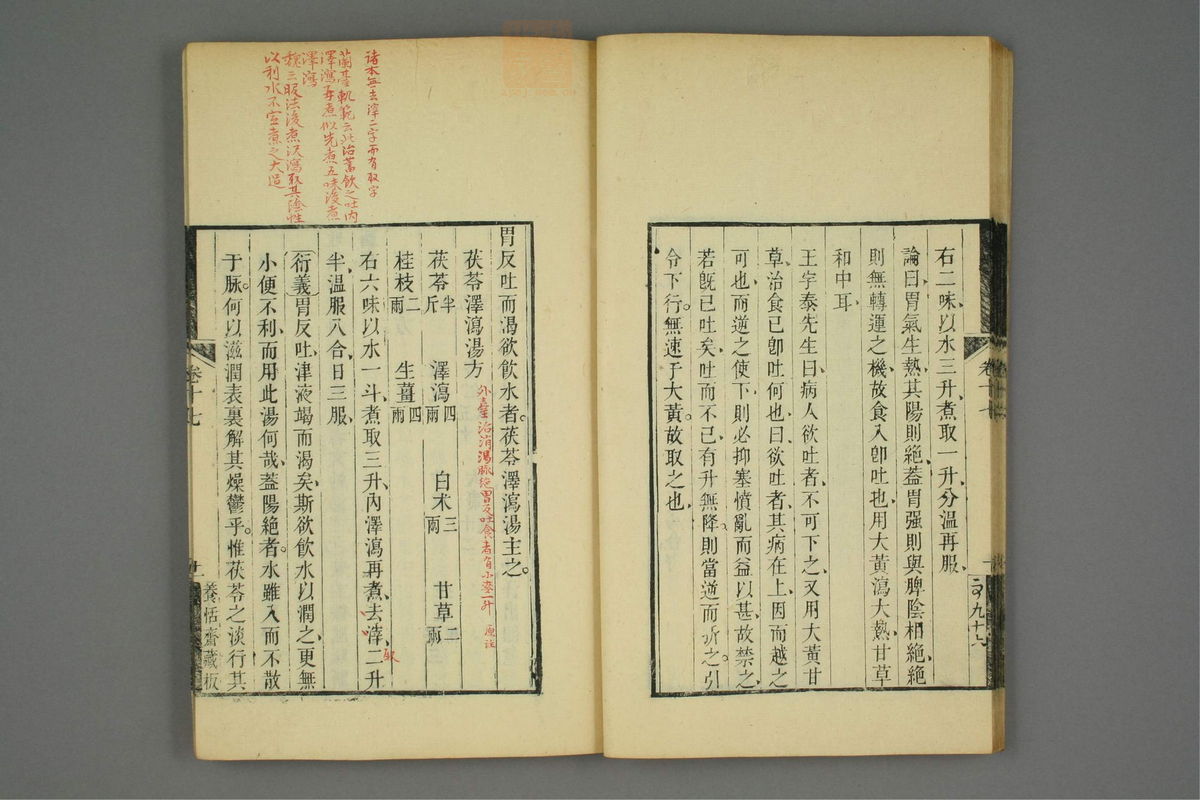 右二味、以水三升、煮取一升、分溫再服、
論曰、胃氣生熱、其陽則絕、蓋胃强則與脾陰相絕、絕
則無轉運之機、故食入卽吐也、用大黃瀉大熱、甘草
和中耳、
王宇泰先生曰、病人欲吐者、不可下之、又用大黃甘
草、治食已卽吐何也、曰、欲吐者、其病在上、因而越之
可也、而逆之使下、則必抑塞憤亂而益以甚、故禁之、
若旣已吐矣、吐而不已、有升無降、則當逆而折之、引
令下行。無速于大黃、故取之也、
卷十七
十
九十六
胃反吐而渴欲飲水者。茯苓澤瀉湯主之。
茯苓澤瀉湯方
外臺治消渴脉絕胃反吐食者有小麥一升 原註
茯苓半斤 澤瀉四兩 白朮三兩 甘草二兩
桂枝二兩 生薑四兩
右六味、以水一斗、煮取三升、內澤瀉再煮、去滓、二升
取
半、溫服八合、日三服、
衍義 胃反吐、津液竭而渴矣、斯欲飲水以潤之、更無
小便不利、而用此湯何哉、蓋陽絕者。水雖入而不散
于脉。何以滋潤表裏、解其燥鬱乎。惟茯苓之淡行其
卷十七
十一
養恬齋藏板
諸本無去滓二字而有取字
蘭臺軌範云此治蓄飲之吐內
澤瀉再煮似先煮五味後煮
澤瀉
魏三服法後煮沢瀉取其陰性
以利水不宜煮之大過